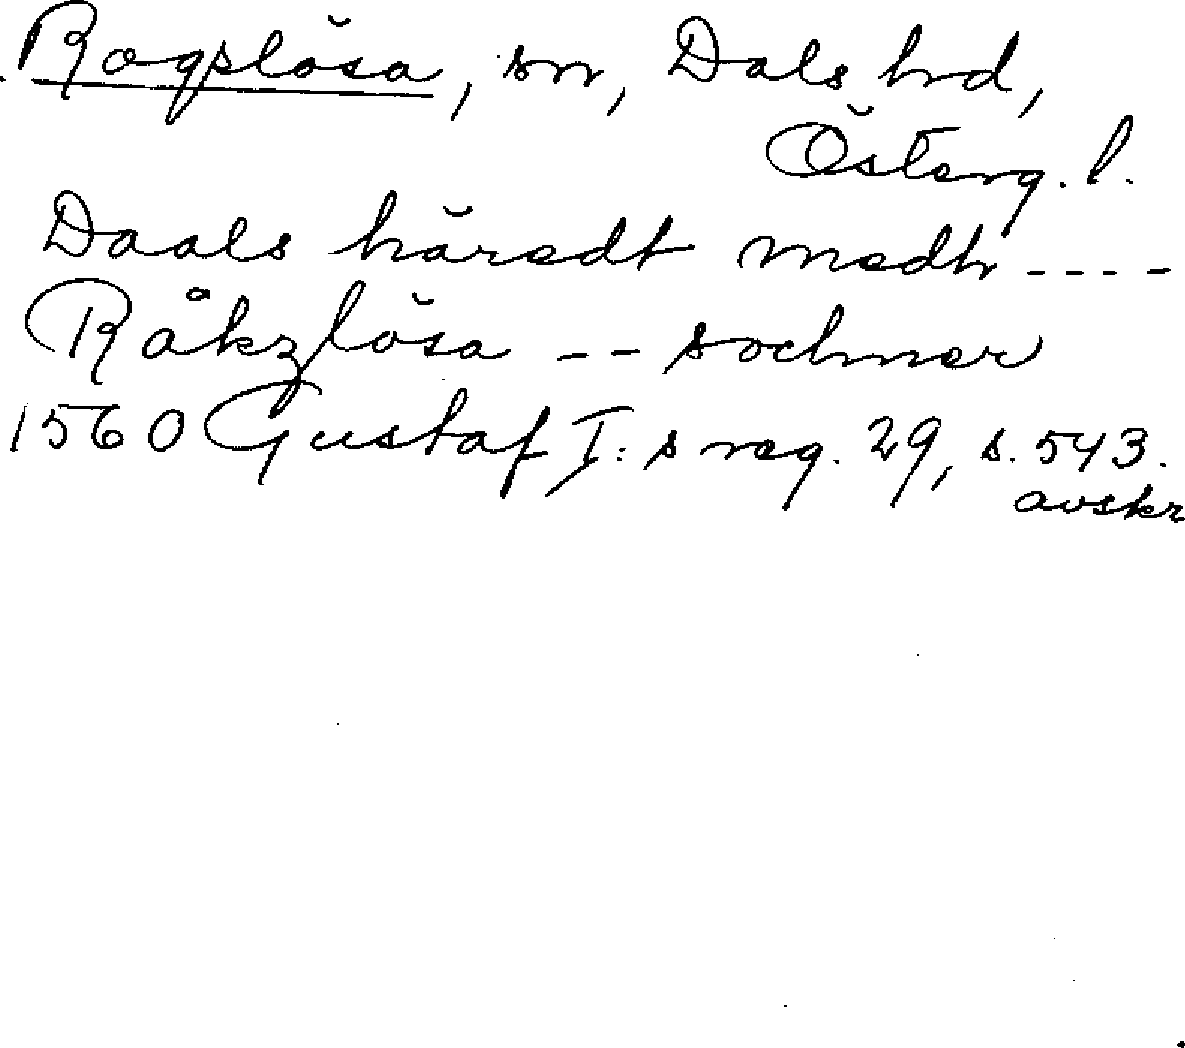 Rogslösa, sn, Dals hrd,
Österg. l.
Daals häredt medh ----
Råkzlösa -- sochner
1560 Gustaf I:s reg. 29, s. 543.
avskr